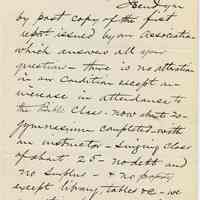 I send you
by post copy of the first
report issued by our Association
which answers all your
question - there is no alteration
in our condition except an
increase in attendance to
the Bible Class - now about 20 -
gymnasium completed - with
an instructor - singing class
of about 25 - no debt and
no surplus - & no property
except library, tables &c - we